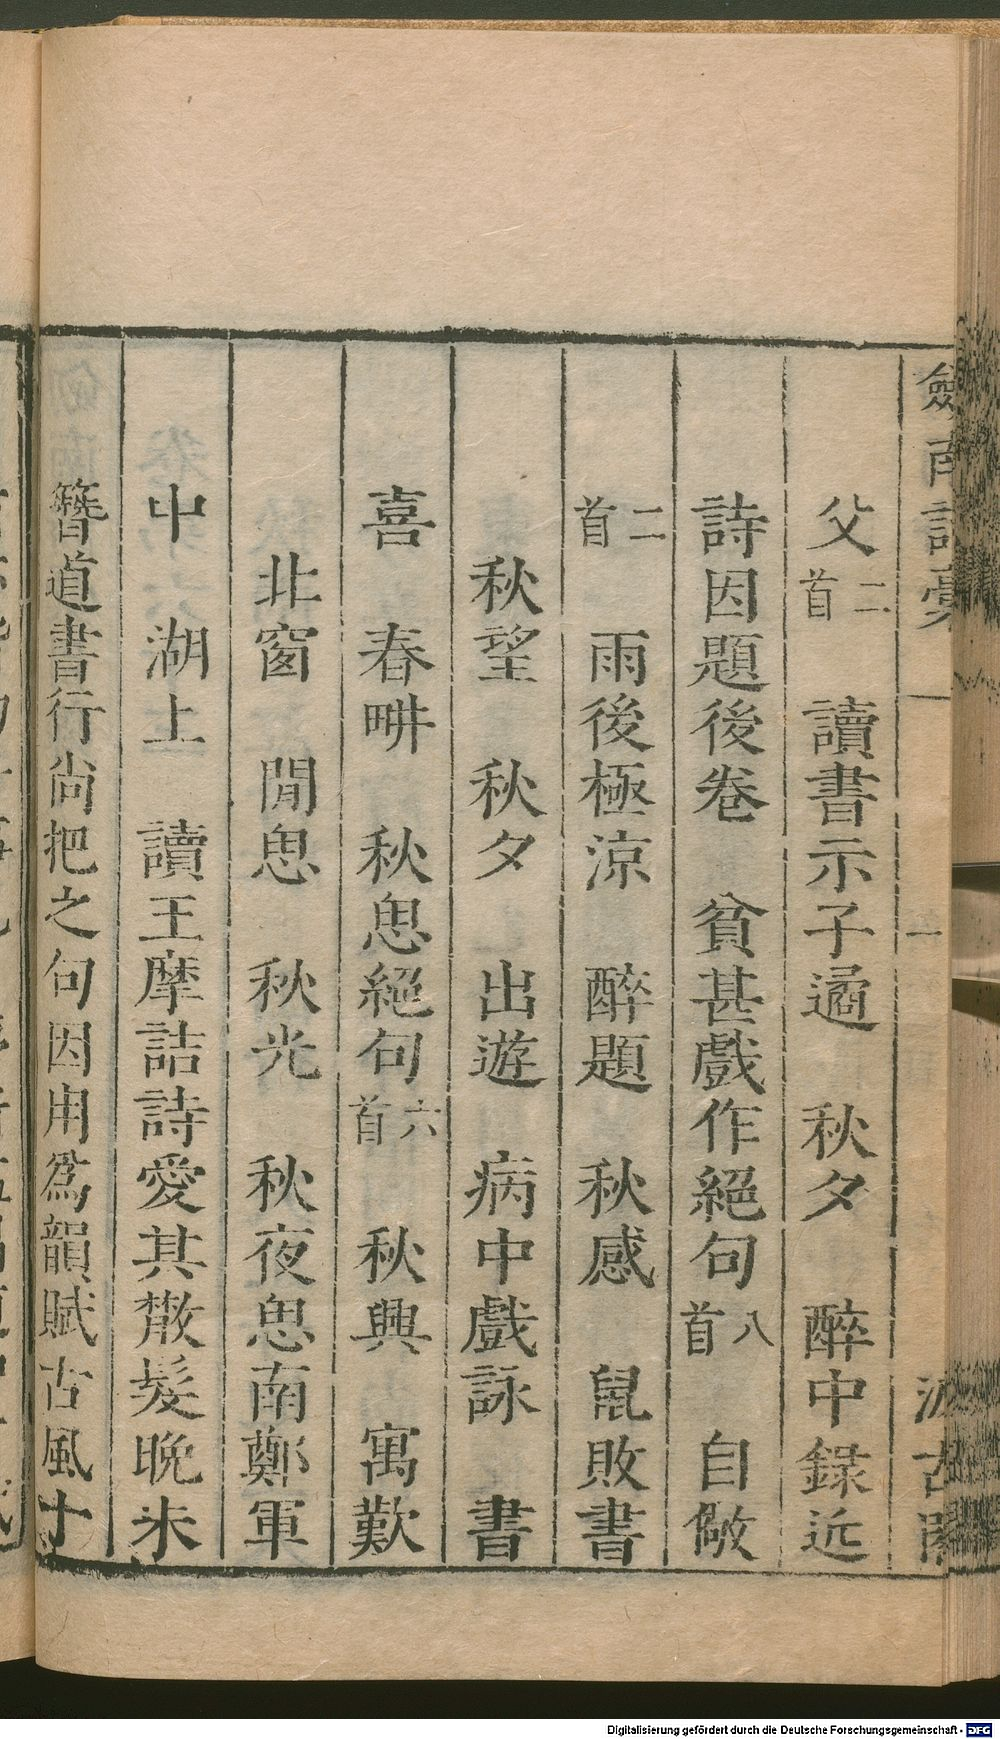 劍南詩稾 一 汲古閣
父二首 讀書示子遹 秋夕 醉中録近
詩因題後卷 貧甚戲作絕句八首 自儆
二首 雨後極涼 醉題 秋感 鼠敗書
秋望 秋夕 出遊 病中戲詠 書
喜 春畊 秋思絕句六首 秋興 寓歎
北窗 閒思 秋光 秋夜思南鄭軍
中 湖上 讀王摩詰詩愛其散髮晚未
簪道書行尚把之句因用爲韻賦古風十
Digitalisierung gefördert durch die Deutsche Forschungsgemeinschaft - DFG